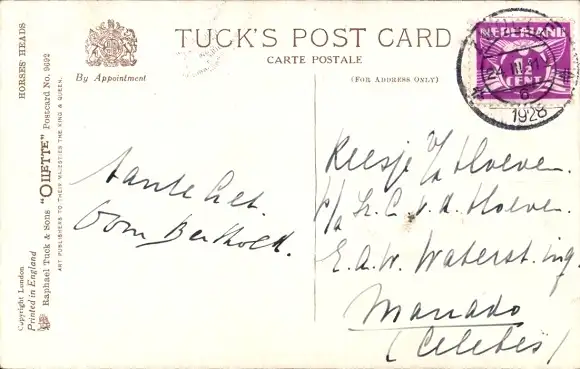 TUCK'S POST CARD
CARTE POSTALE
By Appointment
(FOR ADDRESS ONLY)
NEDERLAND
1½
CENT
24 III 11
6
1928
HORSES' HEADS
Raphael Tuck & Sons "OILETTE" Postcard No. 9692
ART PUBLISHERS TO THEIR MAJESTIES THE KING & QUEEN.
Copyright London
Printed in England
tante Bet.
Oom Berthold.
Keesje v/d Hoeven.
p/a v. d. Hoeven.
E.a.W. Waterst. ing.
Manado
(Celebes)